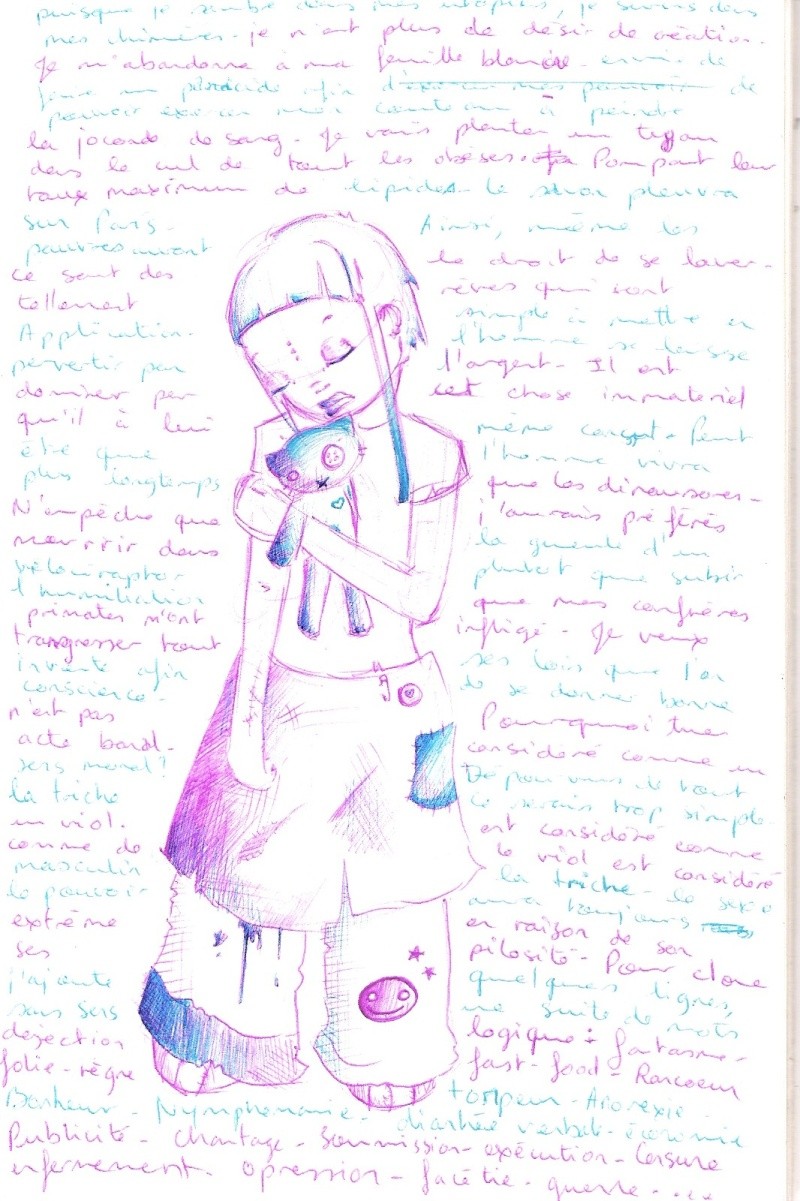 puisque je sombre dans mes utopies, je survis dans
mes chimères. je n'ait plus de désir de création.
Je m'abandonne à ma feuille blanche. envie de
faire un afin de
pouvoir mon couteau à peindre
la joconde de sang. Je vais planter un tuyau
dans le cul de tout les obèses. Pompant leur
taux maximum de lipides. le pleuvra
sur Paris. Ainsi, même les
pauvres auront le droit de se laver.
ce sont des rêves qui sont
tellement simple à mettre en
Application. l'homme se laisse
pervertir par l'argent. Il est
dominer par cet chose immateriel
qu'il à lui même conçut. Peut
être que l'homme vivra
plus longtemps que les dinausores.
N'empêche que j'aurais préférés
mourrir dans la gueule d'un
velociraptor plutot que subir
l'humiliation que mes confrères
primates m'ont infligé. Je veux
transgresser tout ses lois que l'on
invente afin de se donner bonne
conscience. Pourquoi tuer
n'est pas considéré comme un
acte banal. Dépourvus de tout
sens moral? ce serais trop simple.
la triche est considéré comme
un viol. le viol est considéré
comme de la triche. le sexe
masculin aura toujours
le pouvoir en raison de son
extrême pilosité. Pour clore
ses quelques lignes,
j'ajoute une suite de mots
sans sens logique: fantasme.
dejection fast-food - Rancoeur
folie - règne torpeur - Anorexie -
Bonheur - Nymphomanie - diarhée verbal - économie
Publicité - chantage - Soumission - exécution - Censure
enfermement - Opression - facétie - guerre ...